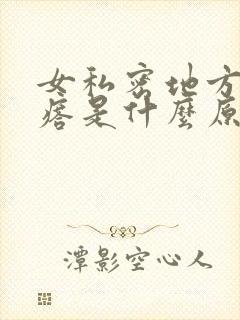 女私密地方
痞是什麼原
潭影空心人